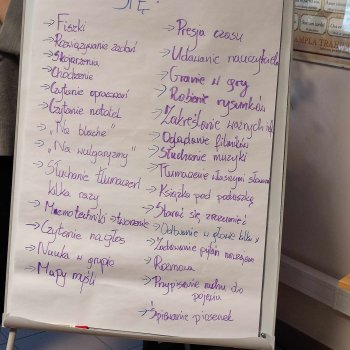 SIĘ?
→ Fiszki
→ Rozwiązywanie zadań
→ Skojarzenia
→ Chodzenie
→ Czytanie opracowań
→ Czytanie notatek
→ „Na blache"
→ „Na wulgaryzmy"
→ Słuchanie tłumaczeń
kilka razy
→ Mnemotechniki → tworzenie
→ Czytanie na głos
→ Nauka w grupie
→ Mapy myśli
→ Presja czasu
→ Udawanie nauczyciela
→ Granie w gry
→ Robienie rysunków
→ Zakreślanie ważnych
→ Oglądanie filmików
→ Słuchanie muzyki
→ Tłumaczenie własnymi słowami
→ Książka pod poduszką
→ Starać się zrozumieć
→ Odtwarzanie w głowie kilka x
→ Zadawanie pytań nauczycielom
→ Rozmowa
→ Przypisywanie ruchu do
pojęcia
→ Śpiewanie piosenek
AMPLA TRAE